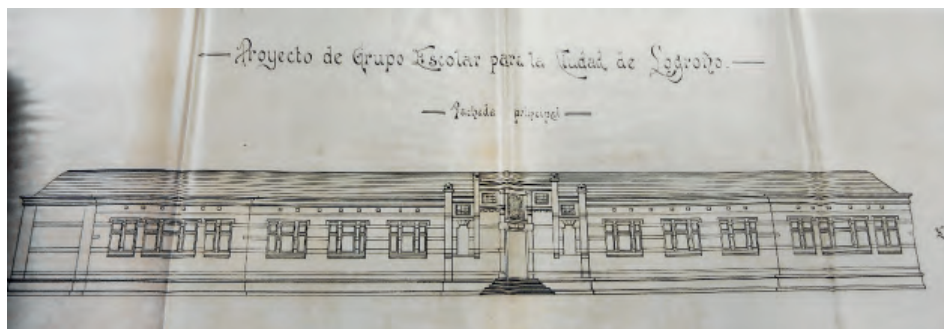 Proyecto de Grupo Escolar para la Ciudad de Logroño.
Fachada principal